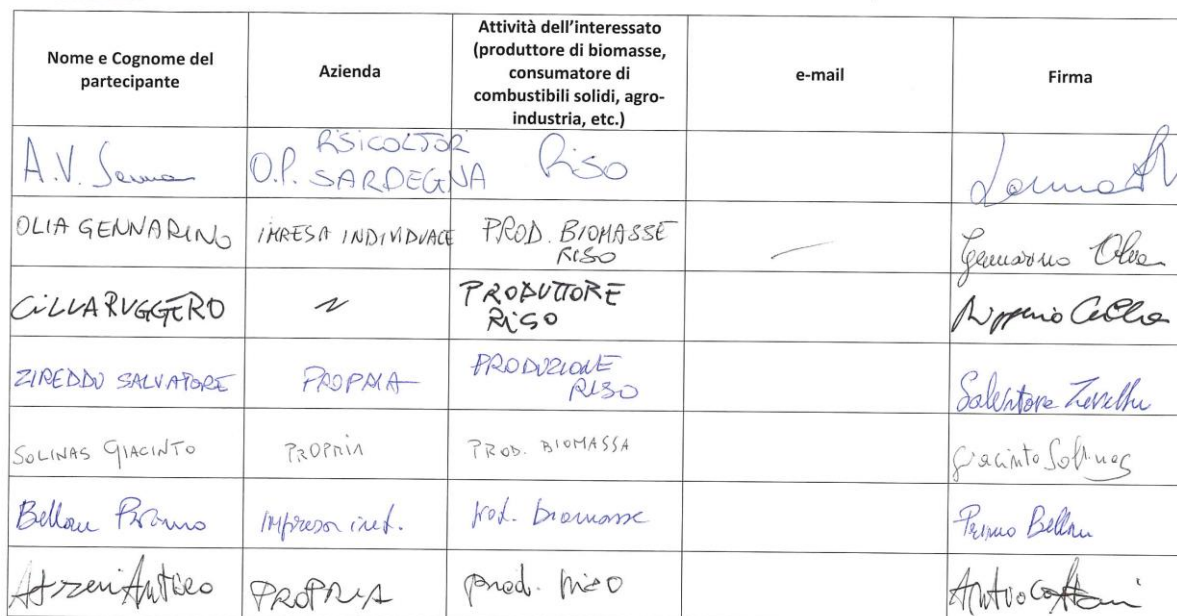 Nome e Cognome del
partecipante
Azienda
Attività dell'interessato
(produttore di biomasse,
consumatore di
combustibili solidi, agro-
industria, etc.)
e-mail
Firma
A.V.
RISICOLTORI
O.P. SARDEGNA
Riso
OLIA GENNARINO
IMPRESA INDIVIDUALE
PROD. BIOMASSE
RISO
Gennarino Olia
CILLA RUGGERO
PRODUTTORE
RISO
Ruggero Cilla
ZIREDDU SALVATORE
PROPRIA
PRODUZIONE
RISO
Salvatore Zireddu
SOLINAS GIACINTO
PROPRIA
PROD. BIOMASSA
Giacinto Solinas
Bellau Primo
Impresa ind.
prod. biomasse
Primo Bellau
Atzeni Antioco
PROPRIA
prod. riso
Antioco Atzeni